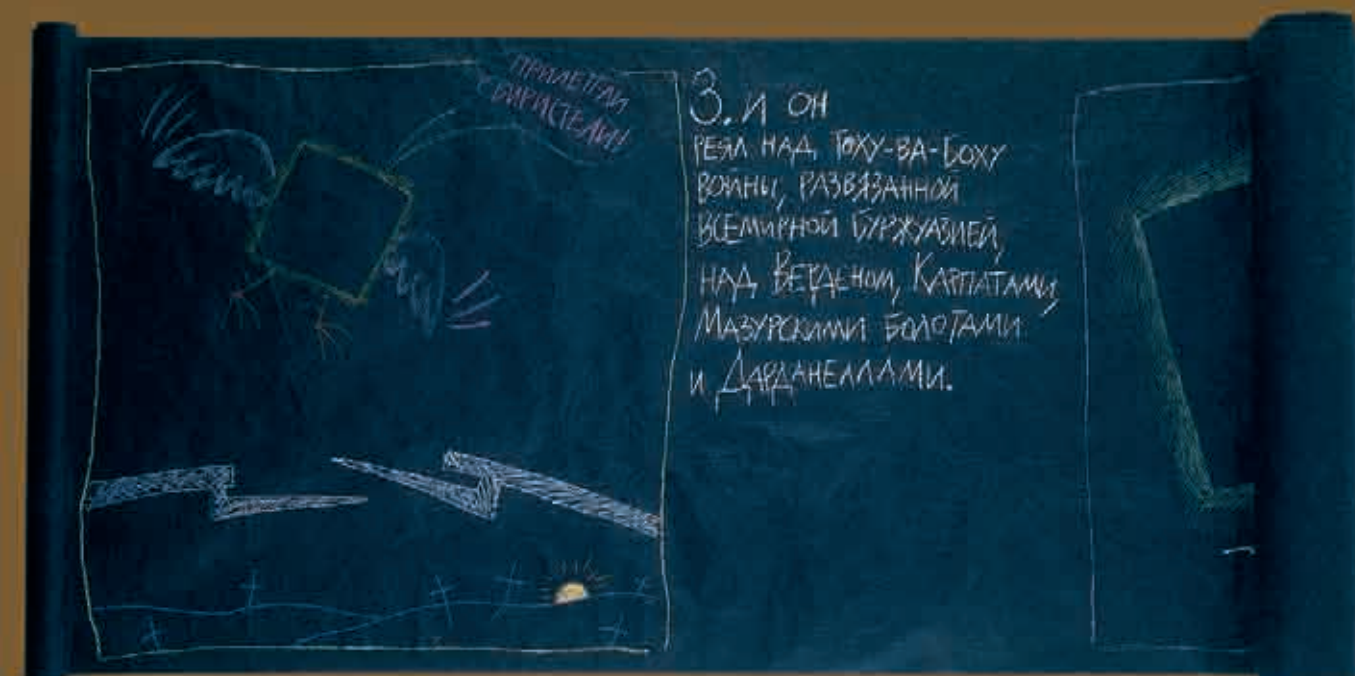 ПРИЛЕТАЙ
СВИРИСТЕЛИ!
3. И ОН
РЕЯЛ НАД ТОХУ-ВА-БОХУ
ВОЙНЫ, РАЗВЯЗАННОЙ
ВСЕМИРНОЙ БУРЖУАЗИЕЙ,
НАД ВЕРДЕНОМ, КАРПАТАМИ,
МАЗУРСКИМИ БОЛОТАМИ
И ДАРДАНЕЛЛАМИ.